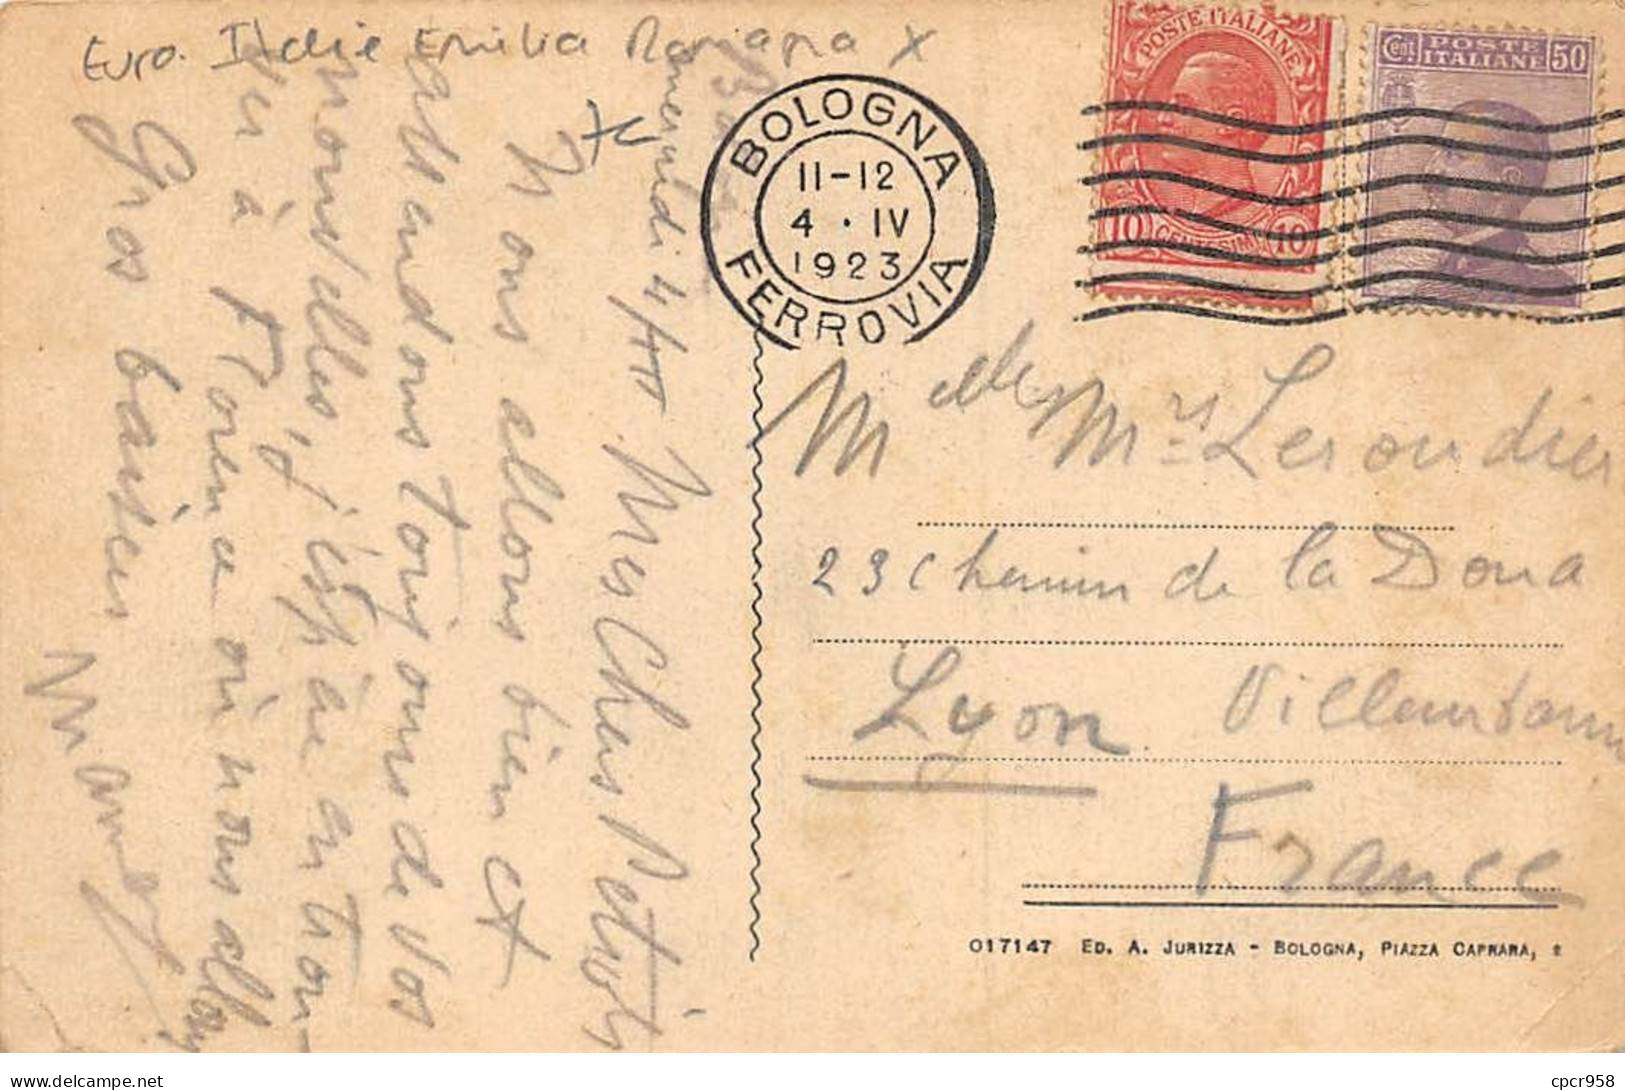 Euro. Italie Emilia Romagna X
POSTE ITALIANE
10 CENTESIMI 10
Cent. POSTE ITALIANE 50
BOLOGNA
11-12
4 · IV
1923
FERROVIA
4/4
Mes Chers Petiots
Nous allons bien et
attendons toujours de vos
nouvelles, j'espère en trouver
à Florence où nous allons
Gros baisers
Mlle M rs Leroudier
23 Chemin de la Doua
Lyon Villeurbanne
France
017147 ED. A. JURIZZA - BOLOGNA, PIAZZA CAPRARA, 2
cpcr958